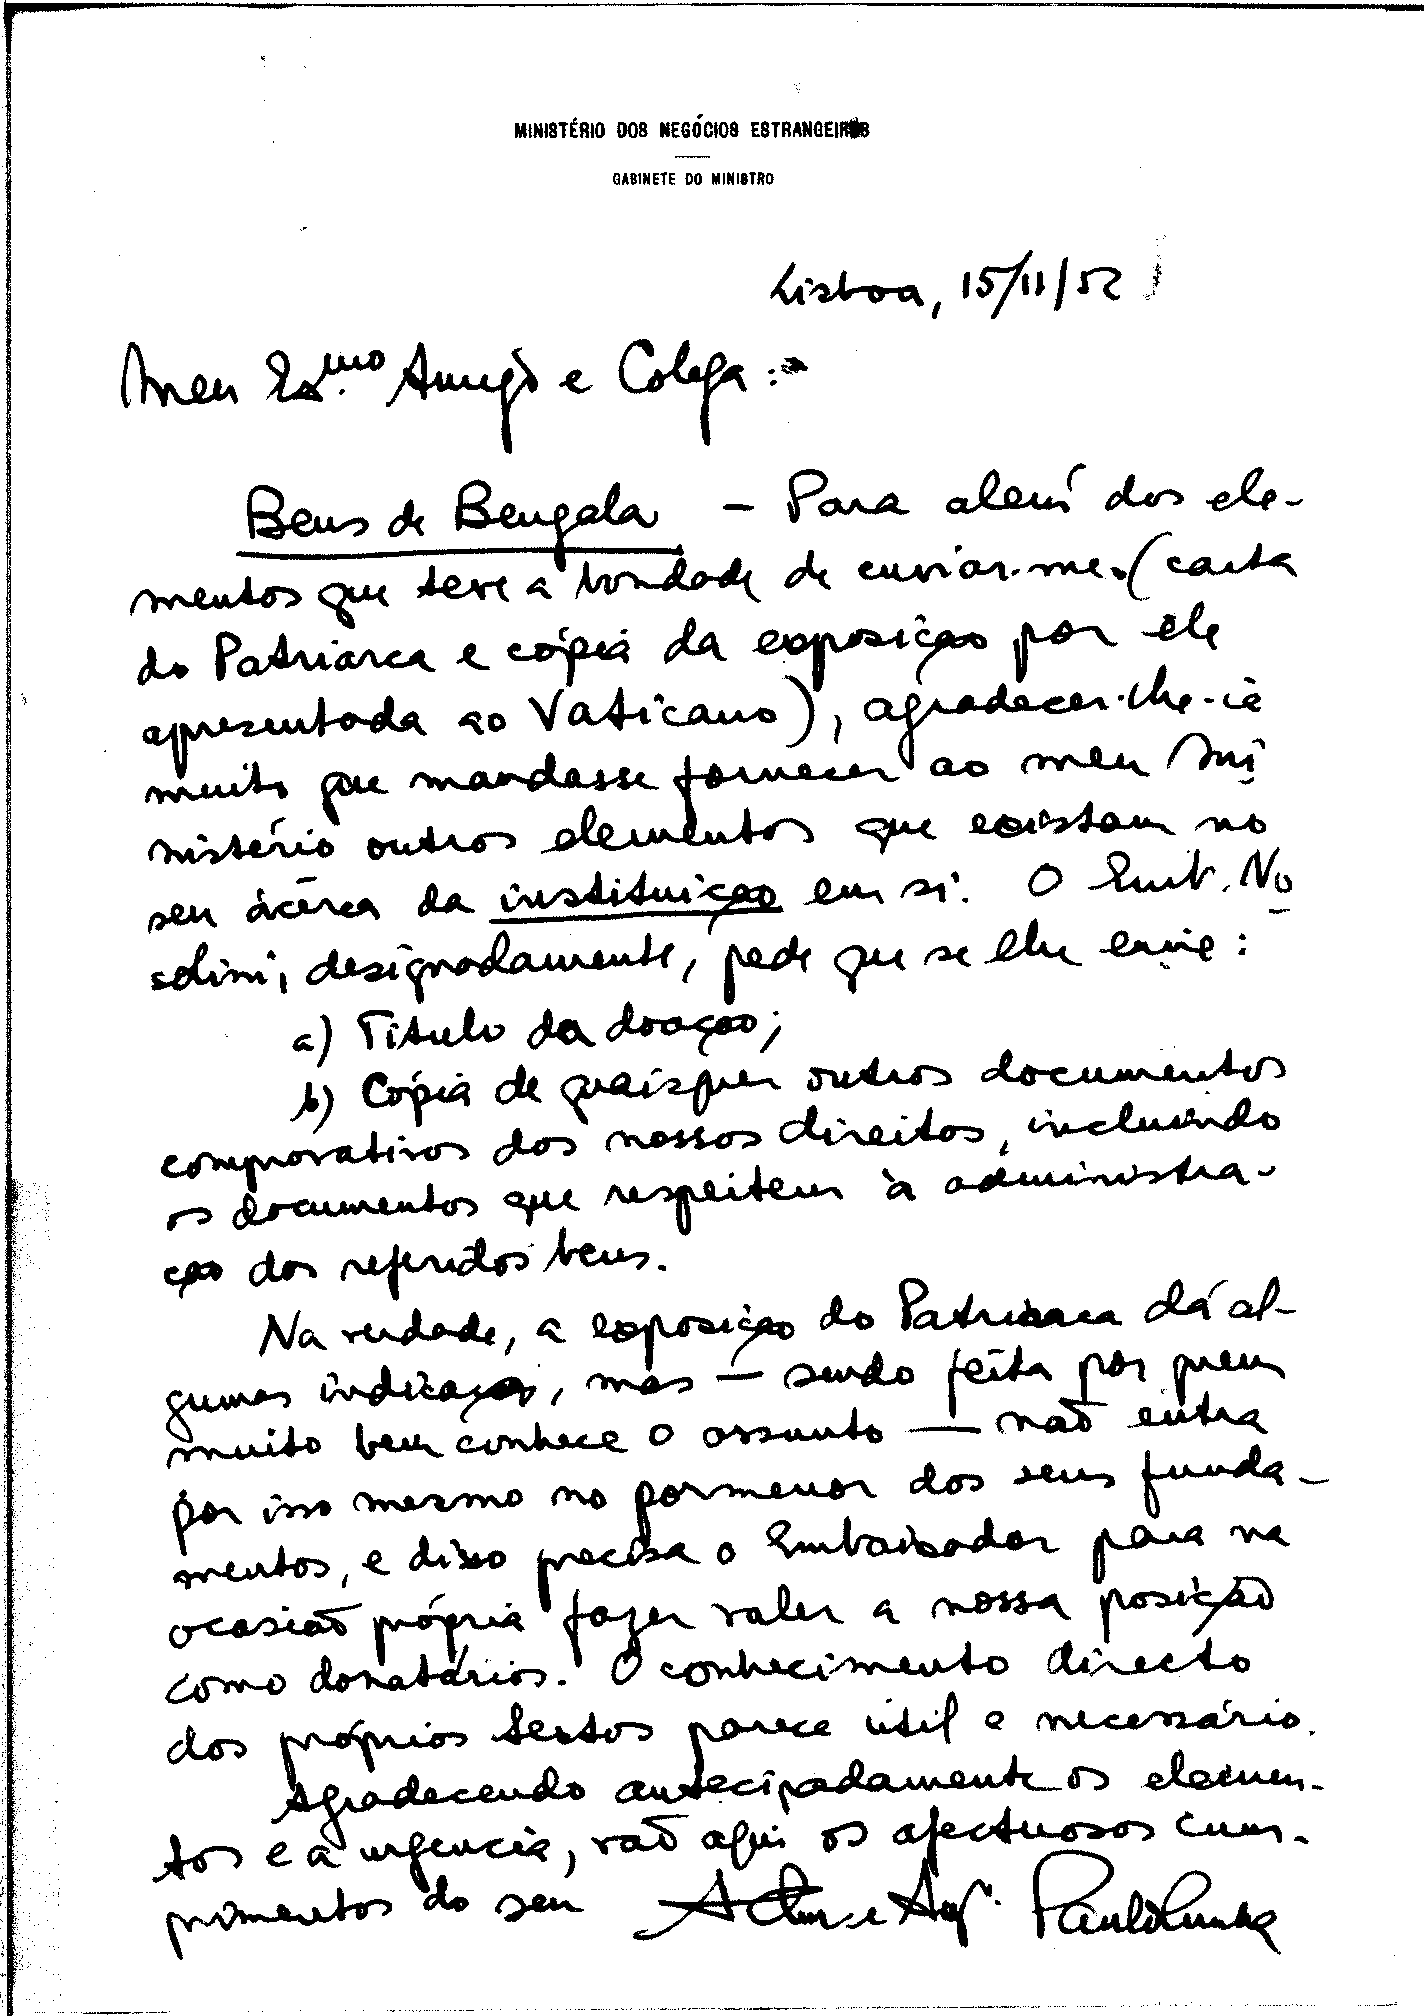 MINISTÉRIO DOS NEGÓCIOS ESTRANGEIROS
GABINETE DO MINISTRO
Lisboa, 15/11/52
Meu Exmo. Amigo e Colega:
Bens de Bengala – Para além dos ele-
mentos que teve a bondade de enviar-me (carta
do Patriarca e cópia da exposição por ele
apresentada ao Vaticano), agradecer-lhe-ia
muito que mandasse fornecer ao meu Mi
nistério outros elementos que existam no
seu àcêrca da instituição em si. O Emb. No
solini, designadamente, pede que se lhe envie:
a) Título da doação;
b) Cópia de quaisquer outros documentos
comprovativos dos nossos direitos, incluindo
os documentos que respeitem à administra-
ção dos referidos bens.
Na verdade, a exposição do Patriarca dá al-
gumas indicações, mas – sendo feita por quem
muito bem conhece o assunto – não entra
por isso mesmo no pormenor dos seus funda-
mentos, e disso precisa o Embaixador para na
ocasião própria fazer valer a nossa posição
como donatários. O conhecimento directo
dos próprios textos parece útil e necessário.
Agradecendo antecipadamente os elemen-
tos e a urgência, vão aqui os afectuosos cum-
primentos do seu Paulo Cunha